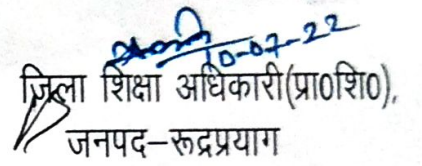 10-07-22
ज़िला शिक्षा अधिकारी(प्रा0शि0),
जनपद-रूद्रप्रयाग